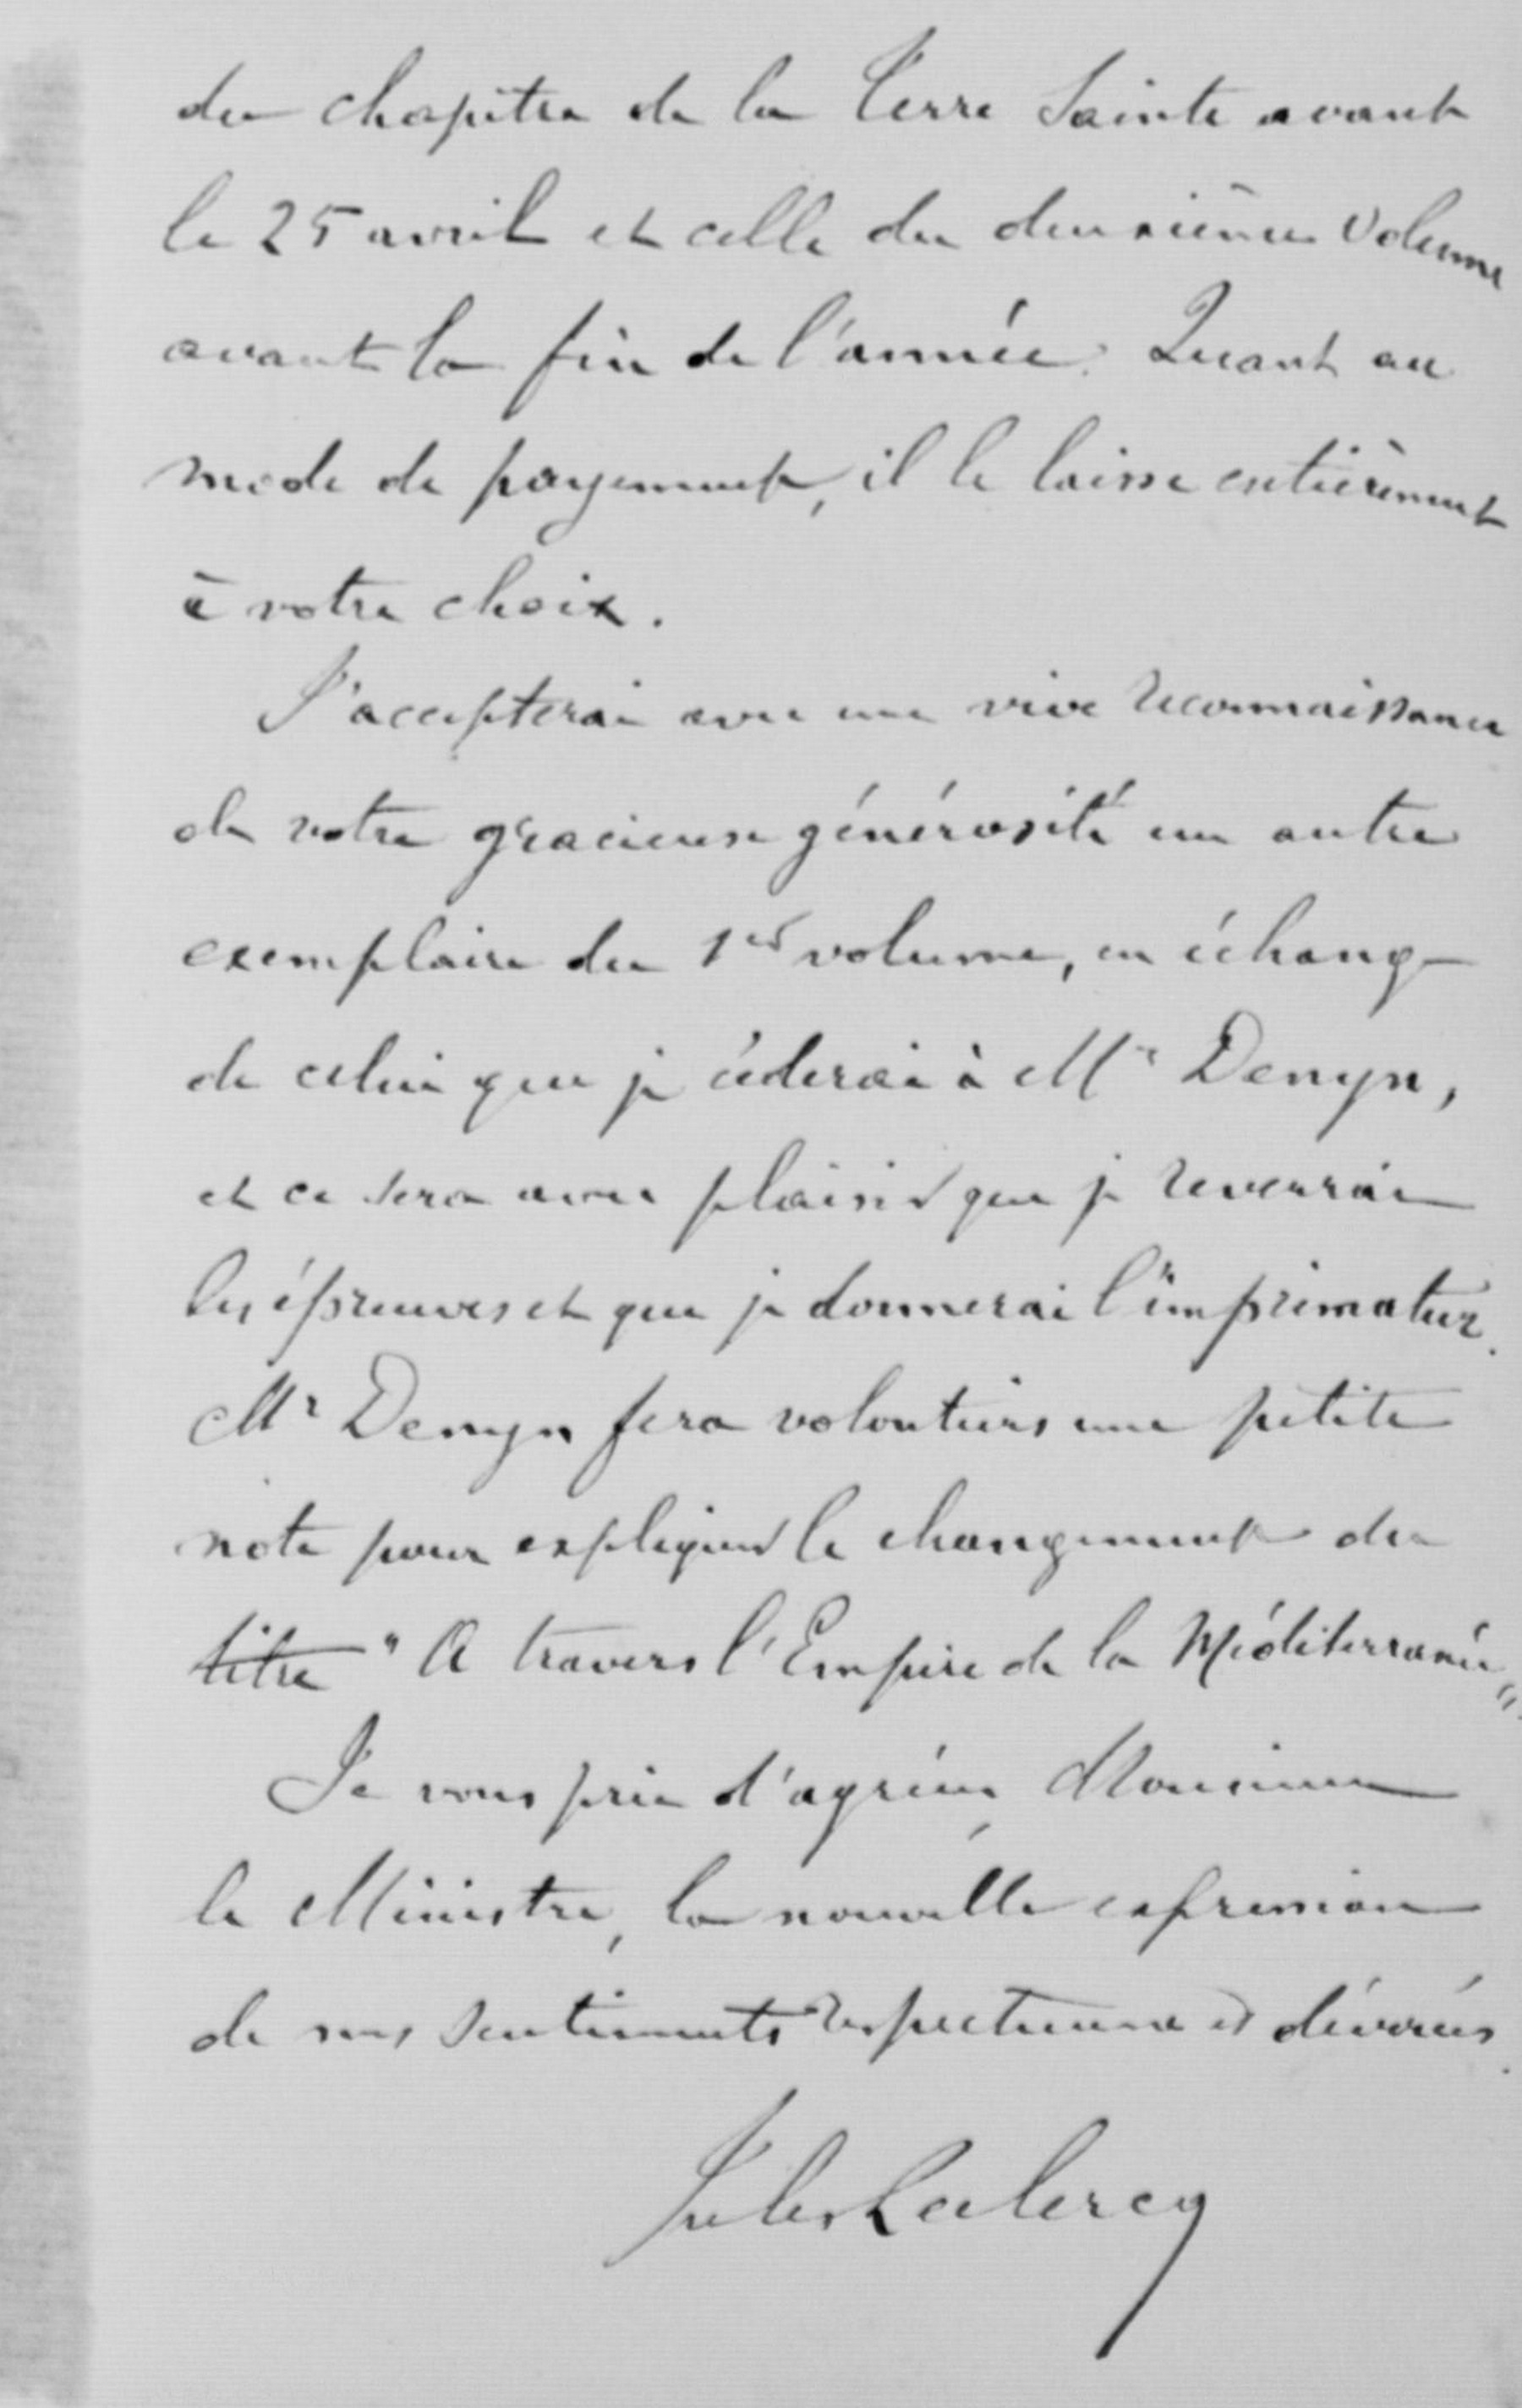 du chapitre de la Terre Sainte avant
le 25 avril et celle du deuxième volume
avant la fin de l'année. Quant au
mode de payement, il le laisse entièrement
à votre choix.
J'accepterai avec une vive reconnaissance
de votre gracieuse générosité un autre
exemplaire du 1er volume, en échange
de celui que je céderai à Mr Denyn,
et ce sera avec plaisir que je reverrai
les épreuves et que je donnerai l'imprimatur.
Mr Denyn fera volontiers une petite
note pour expliquer le changement du
titre "A travers l'Empire de la Méditerranée"
Je vous prie d'agréer, Monsieur
le Ministre, la nouvelle expression
de mes sentiments respectueux et dévoués.
Jules Leclercq